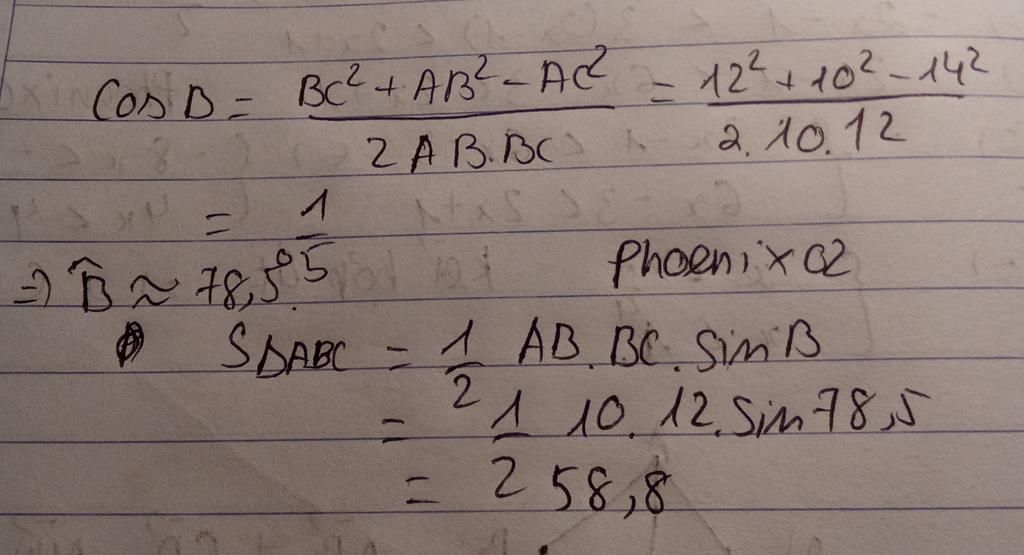 Cos B = BC² + AB² - AC² / 2AB.BC = 12² + 10² - 14² / 2.10.12
= 1/5
=> B̂ ≈ 78,5°.
Phoenix02
SΔABC = 1/2 AB.BC.sin B
= 1/2 10.12.sin 78,5
= 58,8